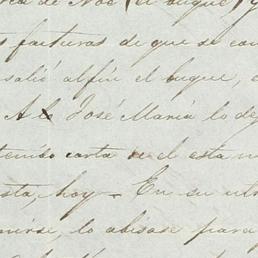 de Noé (el buque) y
facturas de que se con
salió al fin el buque,
A José María lo de
tenido carta
esta, hoy — En su otra
lo abisase para